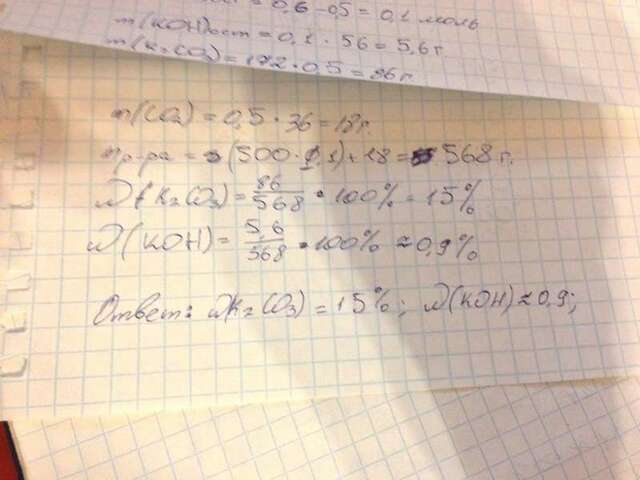 = 0,6-0,5 = 0,1 моль
m(KOH)ост = 0,1 · 56 = 5,6 г
m(K₂CO₃) = 172 · 0,5 = 86 г
m(CO₂) = 0,5 · 36 = 18 г.
mр-ра = (500 · 1,1) + 18 = 568 г.
W(K₂CO₃) = 86/568 · 100% = 15%
W(KOH) = 5,6/568 · 100% ≈ 0,9%
Ответ: W(K₂CO₃) = 15%; W(KOH) ≈ 0,9;